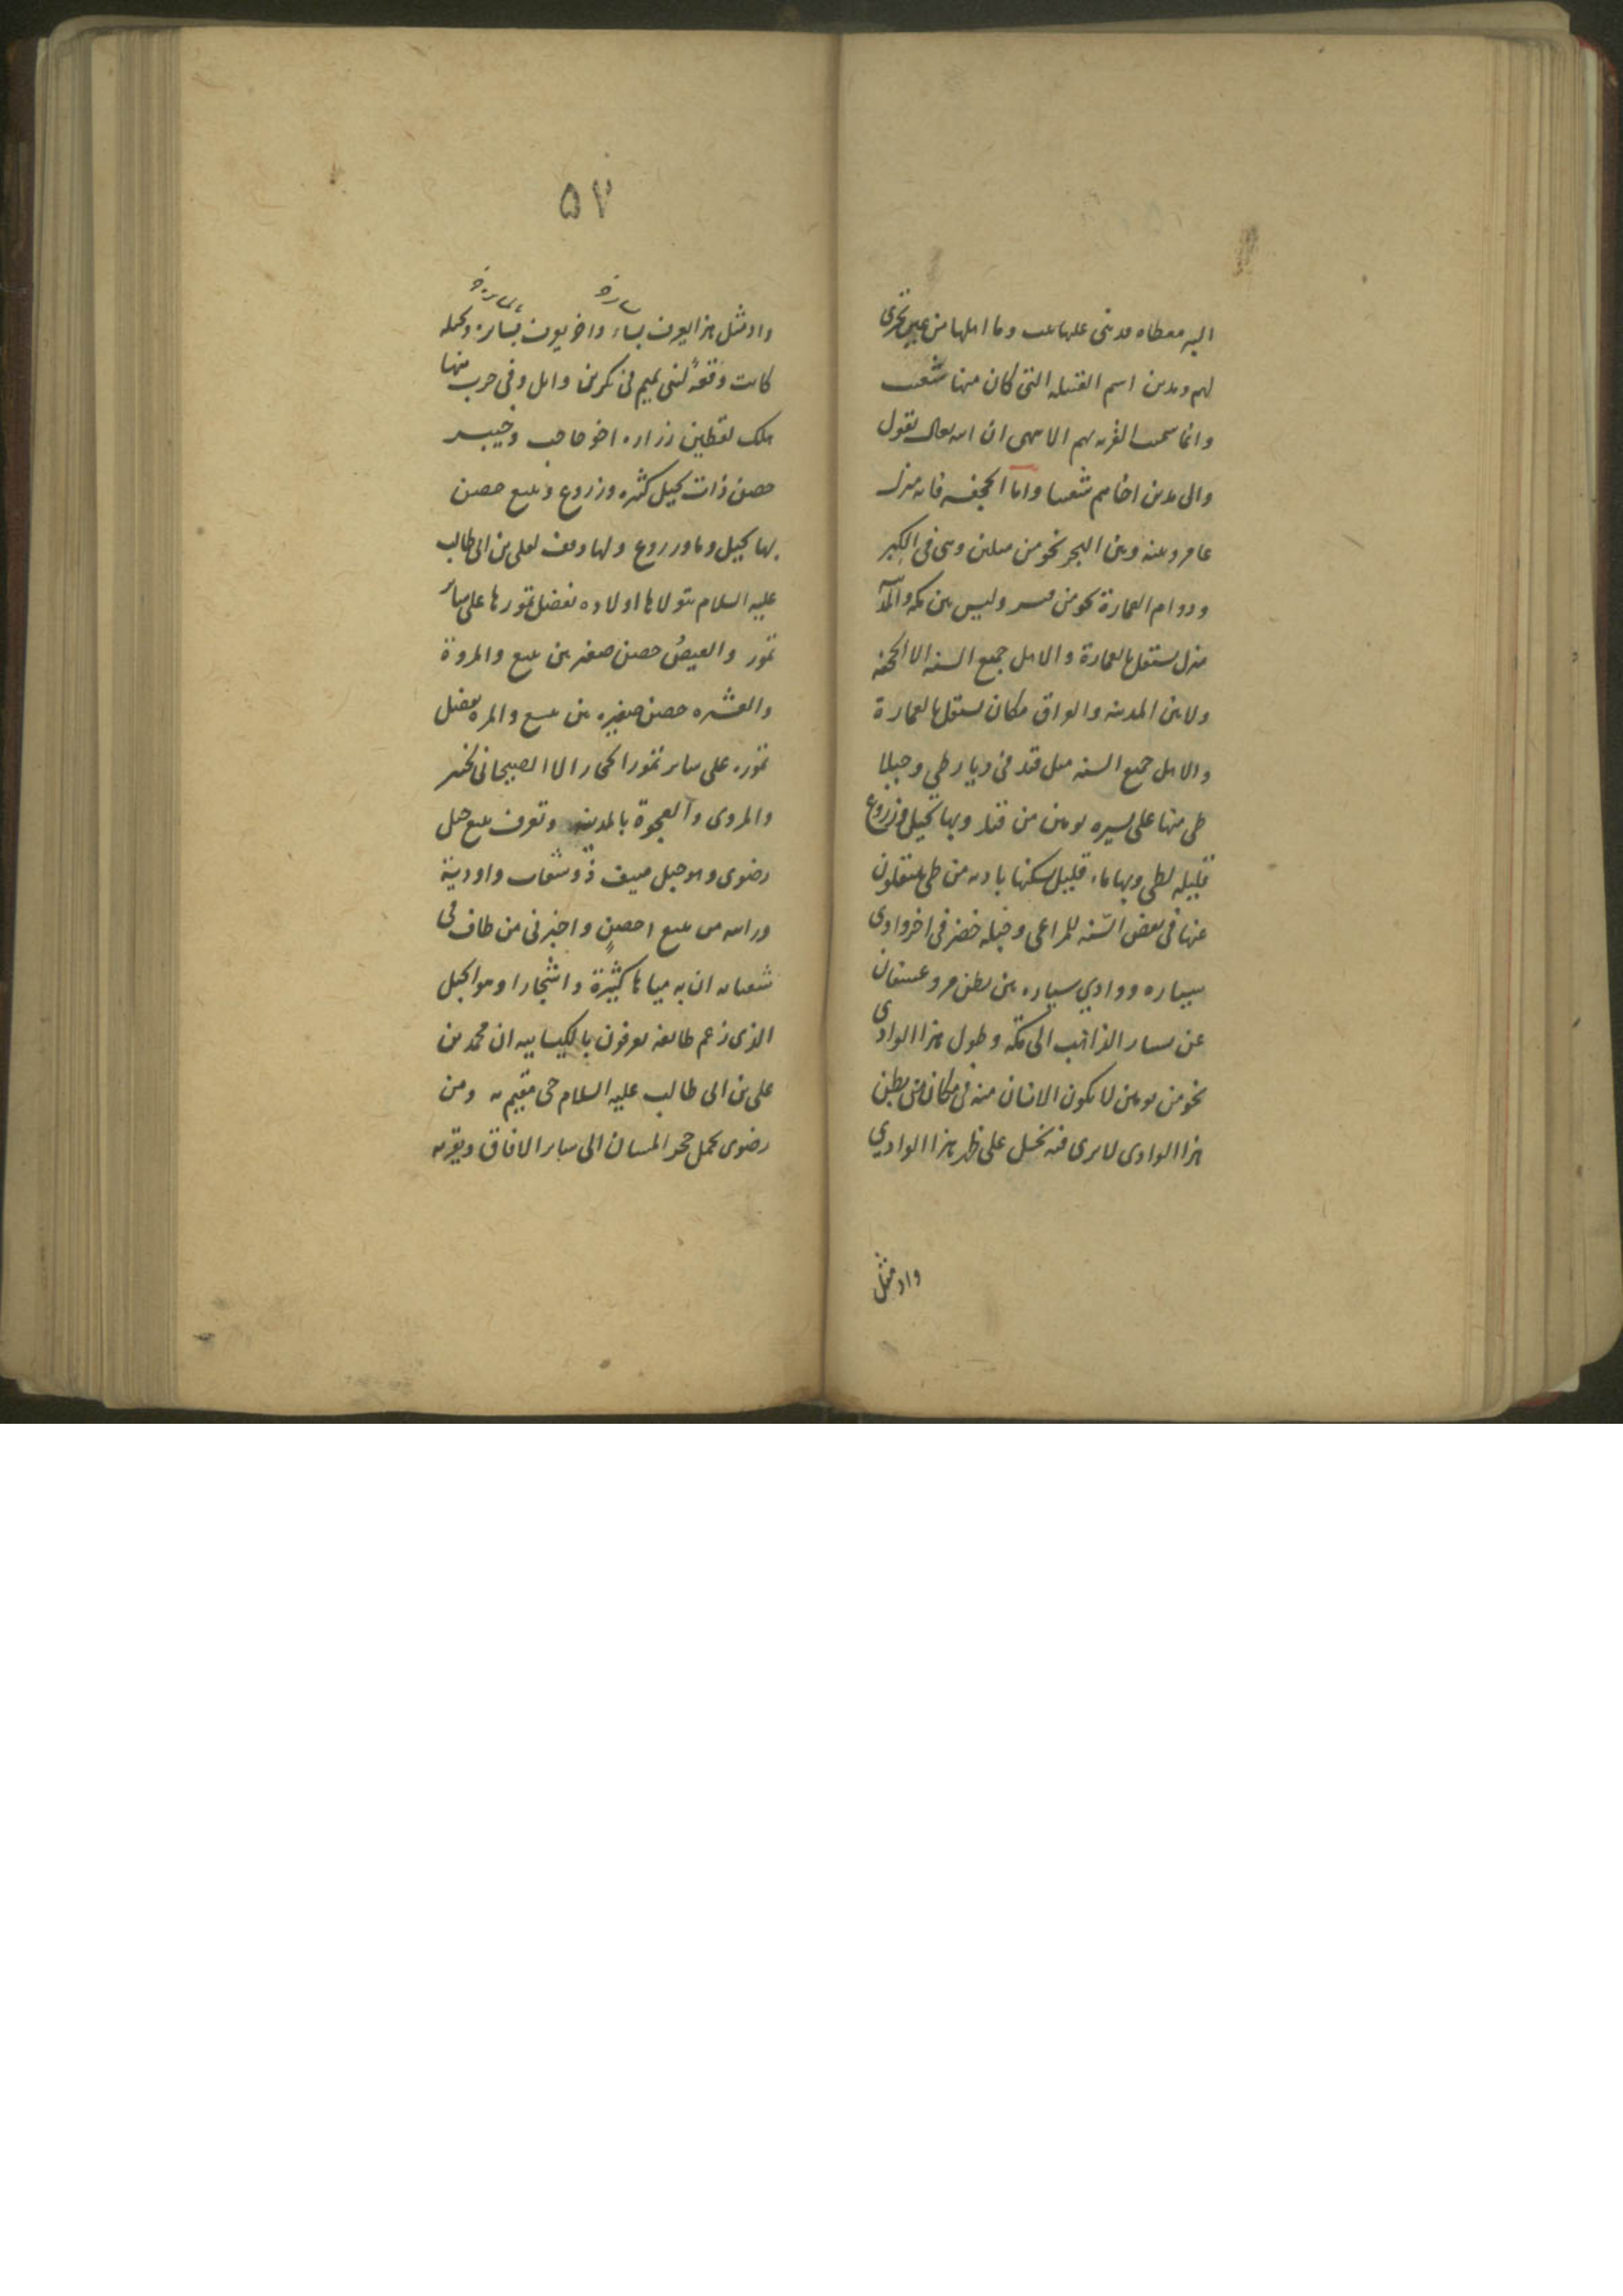 البئر مغطاه قد بنى عليها بيت وما اهلها من عين تجرى
لهم ومدين اسم القبيله التى كان منها شعيب
وانما سميت القريه بهم الا ترى ان الله تعالى يقول
والى مدين اخاهم شعيبا واما الجحفه فانه منزل
عامر وبينه وبين البحر نحو من ميلين وهى فى الكبر
ودوام العمارة نحو من فيد وليس بين مكه والمدينه
منزل يستقل بالعمارة والاهل جميع السنه الا الجحفه
ولا بين المدينه والعراق مكان يستقل بالعمارة
والاهل جميع السنه مثل فيد فى ديار طى وجبلا
طى منها على مسيره يومين من فيد وبها نخيل وزروع
قليله لطى وبها ماء قليل يسكنها باديه من طى ينتقلون
عنها فى بعض السّنه للمراعى وجبله حصن فى اخر وادى
سياره ووادي سياره بين بطن مر وعسفان
عن يسار الذاهب الى مكّه وطول هذا الوادى
نحو من يومين لا يكون الانسان منه فى مكان من بطن
هذا الوادى لا يرى فيه نخيل على ظهر هذا الوادي
واد مثل
۵۷
واد مثل هذا يعرف بساء واخر يعرف بسايره وجبله
كانت وَقعهُ لبنى تميم فى بكر بن وايل وفى حرب منها
هلك لقيط بن زراره اخو حاجب وخيبر
حصن ذات نخيل كثيره وزروع وينبع حصن
بها نخيل وماء وزروع ولها وقف لعلى بن ابى طالب
عليه السلام يتولاها اولاده تفضل تمورها على ساير
تمور والعيصُ حصن صغير بين ينبع والمروة
والعشيره حصن صغيره بين ينبع والمره تفضل
تموره على ساير تمور الحجاز الا الصيحانى بخيبر
والبردى والعجوة بالمدينه وبقرب ينبع جبل
رضوى وهو جبل منيف ذو شعاب واودية
ورايته من ينبع اخضر واخبرنى من طاف فى
شعابه ان به مياها كثيرة واشجارا وهو الجبل
الذى زعم طايفه يعرفون بالكيسانيه ان محمد بن
على بن ابى طالب عليه السلام حى مقيم به ومن
رضوى يحمل حجر المسان الى ساير الافاق وبقربه